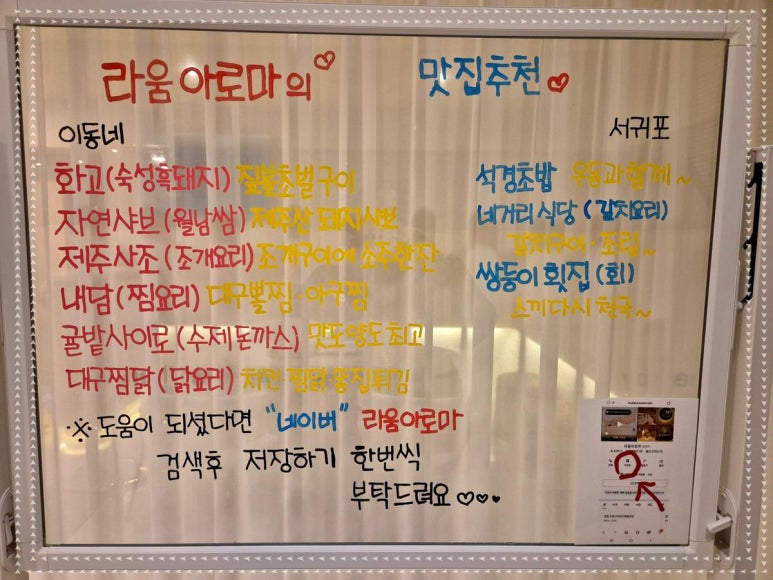 라움아로마의 맛집추천
이동네
화고(숙성흑돼지) 짚불초벌구이
자연샤브(월남쌈) 제주산돼지샤브
제주사조(조개요리) 조개구이에 소주한잔
내담(찜요리) 대구뽈찜·아구찜
귤밭사이로(수제돈까스) 맛도양도최고
대구찜닭(닭요리) 치킨·찜닭·똥집튀김
서귀포
석경초밥 우동과함께~
네거리식당(갈치요리)
갈치구이·조림~
쌍둥이횟집(회)
스끼다시천국~
※도움이 되셨다면 "네이버" 라움아로마
검색후 저장하기 한번씩
부탁드려요